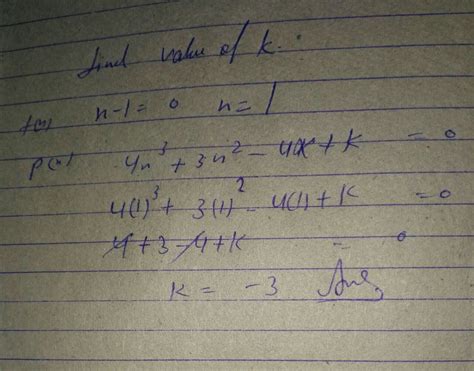 find value of k :
f(x) x-1 = 0 x = 1
p(x) 4x³ + 3x² - 4x + k = 0
4(1)³ + 3(1)² - 4(1) + k = 0
4 + 3 - 4 + k = 0
k = -3 Ans